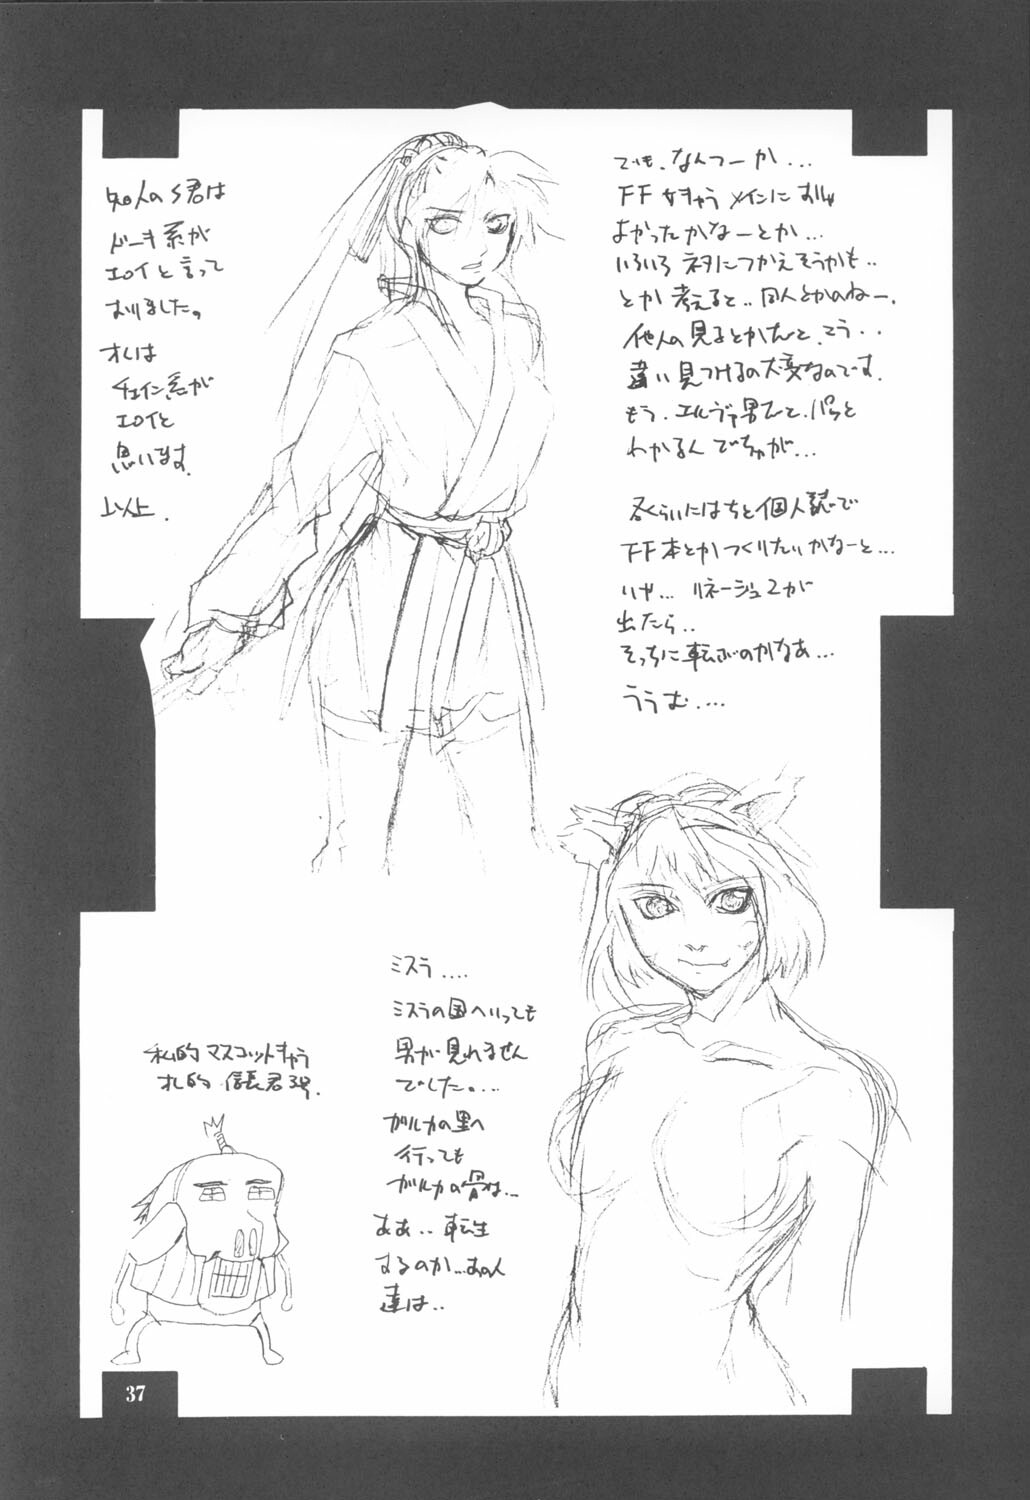 でも、なんつーか...
FF 女キャラ メインにすりゃ
よかったかなーとか...
いろいろ ネタにつかえそうかも..
とか 考えると.. 同人とかのねー.
他人の見るとかだと、こう..
違い見つけるの大変なのです.
もう、エルヴァ男だと、パッと
わかるんでちゅが...
冬くらいにはちと個人誌で
FF本とかつくりたいかなーと...
いや... リネージュ2が
出たら..
そっちに転ぶのかなあ...
ううむ....
知人のS君は
ドーキ系が
エロイと言って
おりました。
オレは
チェイン系が
エロイと
思います.
以上.
ミスラ....
ミスラの国へいっても
男が見れません
でした。...
ガルカの里へ
行っても
ガルカの骨は...
ああ.. 転生
するのか...あの人
達は..
私的 マスコットキャラ
オレ的 信長君3号.
37